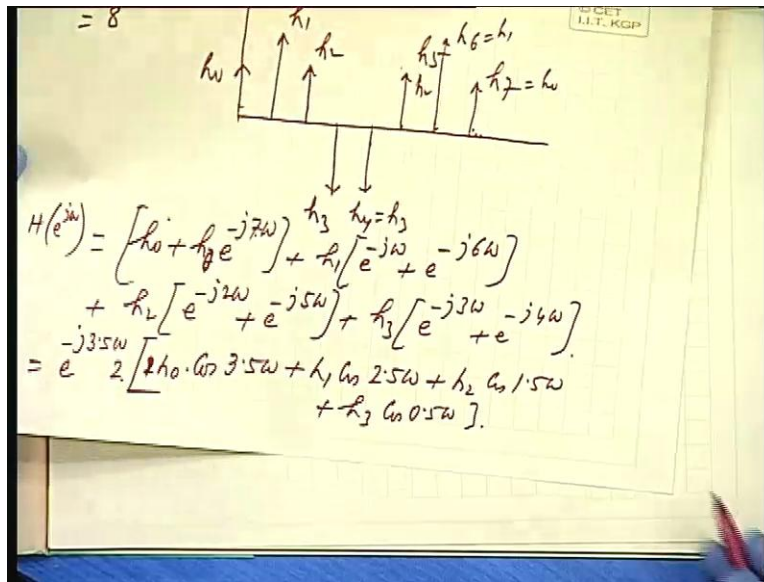 = 8
h₁
h₆ = h₁
© CET
I.I.T. KGP
h₀
h₂
h₅
h₂
h₇ = h₀
h₃ h₄ = h₃
H(e^{jω}) = [h₀ + h₀ e^{-j7ω}] + h₁ [e^{-jω} + e^{-j6ω}]
+ h₂ [e^{-j2ω} + e^{-j5ω}] + h₃ [e^{-j3ω} + e^{-j4ω}].
= e^{-j3.5ω} 2. [h₀. Cos 3.5ω + h₁ Cos 2.5ω + h₂ Cos 1.5ω
+ h₃ Cos 0.5ω].